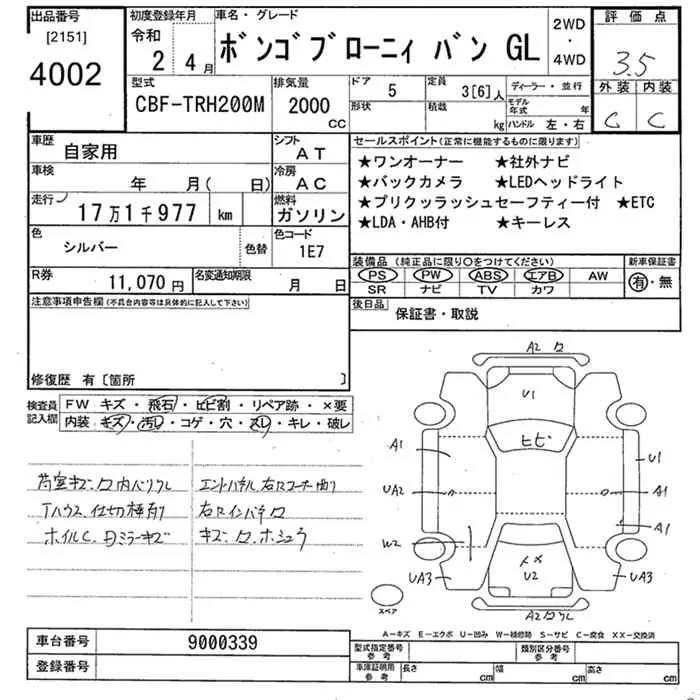 出品番号
[2151]
4002
初度登録年月
令和
2 4月
車名・グレード
ボンゴブローニィ バン GL
2WD
・
4WD
評価点
3.5
外装 内装
C C
型式
CBF-TRH200M
排気量
2000
cc
ドア 5
形状
定員 3[6]人
積載 kg
ディーラー・並行
モデル年式 年
ハンドル 左・右
車歴 自家用
シフト AT
車検 年 月( 日)
冷房 AC
走行 17万1千977 km
燃料 ガソリン
色 シルバー
色替
色コード 1E7
R券 11,070円
名変通知期限 月 日
セールスポイント(正常に機能するものに限ります)
★ワンオーナー ★社外ナビ
★バックカメラ ★LEDヘッドライト
★プリクッラッシュセーフティー付 ★ETC
★LDA・AHB付 ★キーレス
装備品(純正品に限り○をつけてください)
新車保証書
PS PW ABS エアB AW
SR ナビ TV カワ
有・無
後日品 保証書・取説
注意事項申告欄(不具合内容等は具体的に記入して下さい)
修復歴 有〔箇所 〕
検査員記入欄
FW キズ・飛石・ヒビ割・リペア跡・×要
内装 キズ・汚レ・コゲ・穴・スレ・キレ・破レ
荷室キズ
ホイルC
A2
U1
ヒビ
A1
U1
UA2
A1
A1
W2
UA3
U2
UA3
A2
スペア
A-キズ E-エクボ U-凹み W-補修跡 S-サビ C-腐食 XX-交換済
車台番号 9000339
登録番号
型式指定番号 参考
類別区分番号 参考
車庫証明用 参考
長さ cm
幅 cm
高さ cm